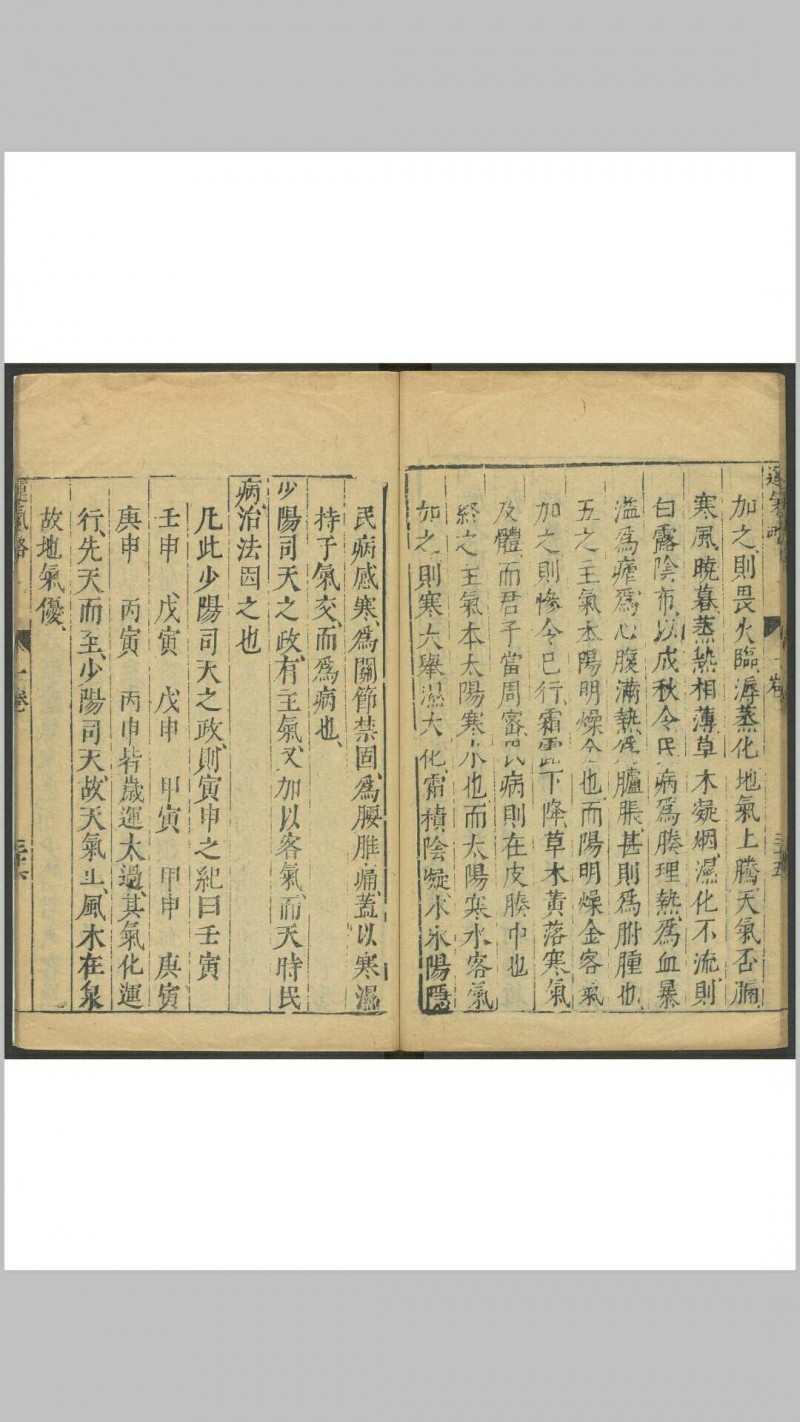 運氣畧
一卷
三十五
加之、則畏火臨、溽蒸化、地氣上騰、天氣否膈、
寒風、曉暮、蒸熱相薄、草木凝烟、濕化不流、則
白露陰布、以成秋令、民病爲腠理熱、爲血暴
溢、爲瘧、爲心腹滿熱、爲臚脹、甚則爲胕腫也、
五之主氣本陽明燥金也、而陽明燥金客氣
加之、則慘令已行、霜露下降、草木黃落、寒氣
及體、而君子當周密、民病則在皮腠中也
終之主氣本太陽寒水也、而太陽寒水客氣
加之、則寒大舉、濕大化、霜積陰凝、水氷陽隱
民病感寒、爲關節禁固、爲腰脽痛、蓋以寒濕
持于氣交、而爲病也、
少陽司天之政、有主氣、又加以客氣、而天時民
病、治法因之也
凡此少陽司天之政、則寅申之紀曰壬寅
壬申 戊寅 戊申 甲寅 甲申 庚寅
庚申 丙寅 丙申者歲運太過、其氣化運
行、先天而至、少陽司天、故天氣正、風木在泉
故地氣優、
運氣畧
一卷
三十六